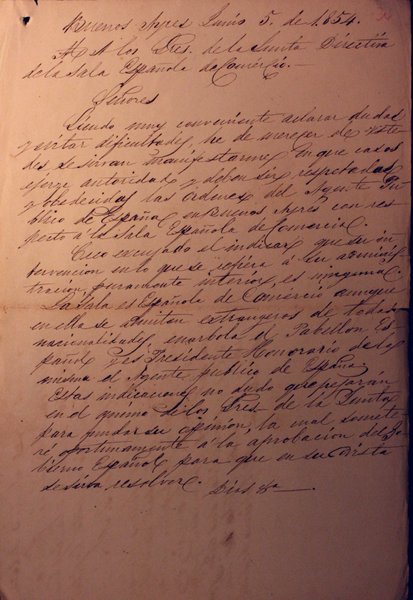 Buenos Ayres Junio 5. de 1854.
A los Sres. de la Junta Directiva
de la Sala Española de Comercio.—
Señores
Siendo muy conveniente aclarar dudas
y evitar dificultades, he de merecer de Uste
des se sirvan manifestarme en que casos
ejerze autoridad y deben ser respetadas
y obedecidas las ordenes del Agente Pu
blico de España en Buenos Ayres con res
pecto a la Sala Española de Comercio.
Creo escusado el indicar que su in
tervencion en lo que se refiera a su adminis
tracion, puramente interior, es ninguna.
La Sala es Española de Comercio aunque
en ella se admitan estrangeros de todas
nacionalidades, enarbola el Pabellon Es
pañol y es Presidente Honorario de la
misma el Agente publico de España.
Estas indicaciones no dudo que pesarán
en el animo de los Sres. de la Junta
para fundar su opinion, la cual somete
ré oportunamente á la aprobacion del Go
bierno Español para que en su vista
se sirva resolver.
Dios &a